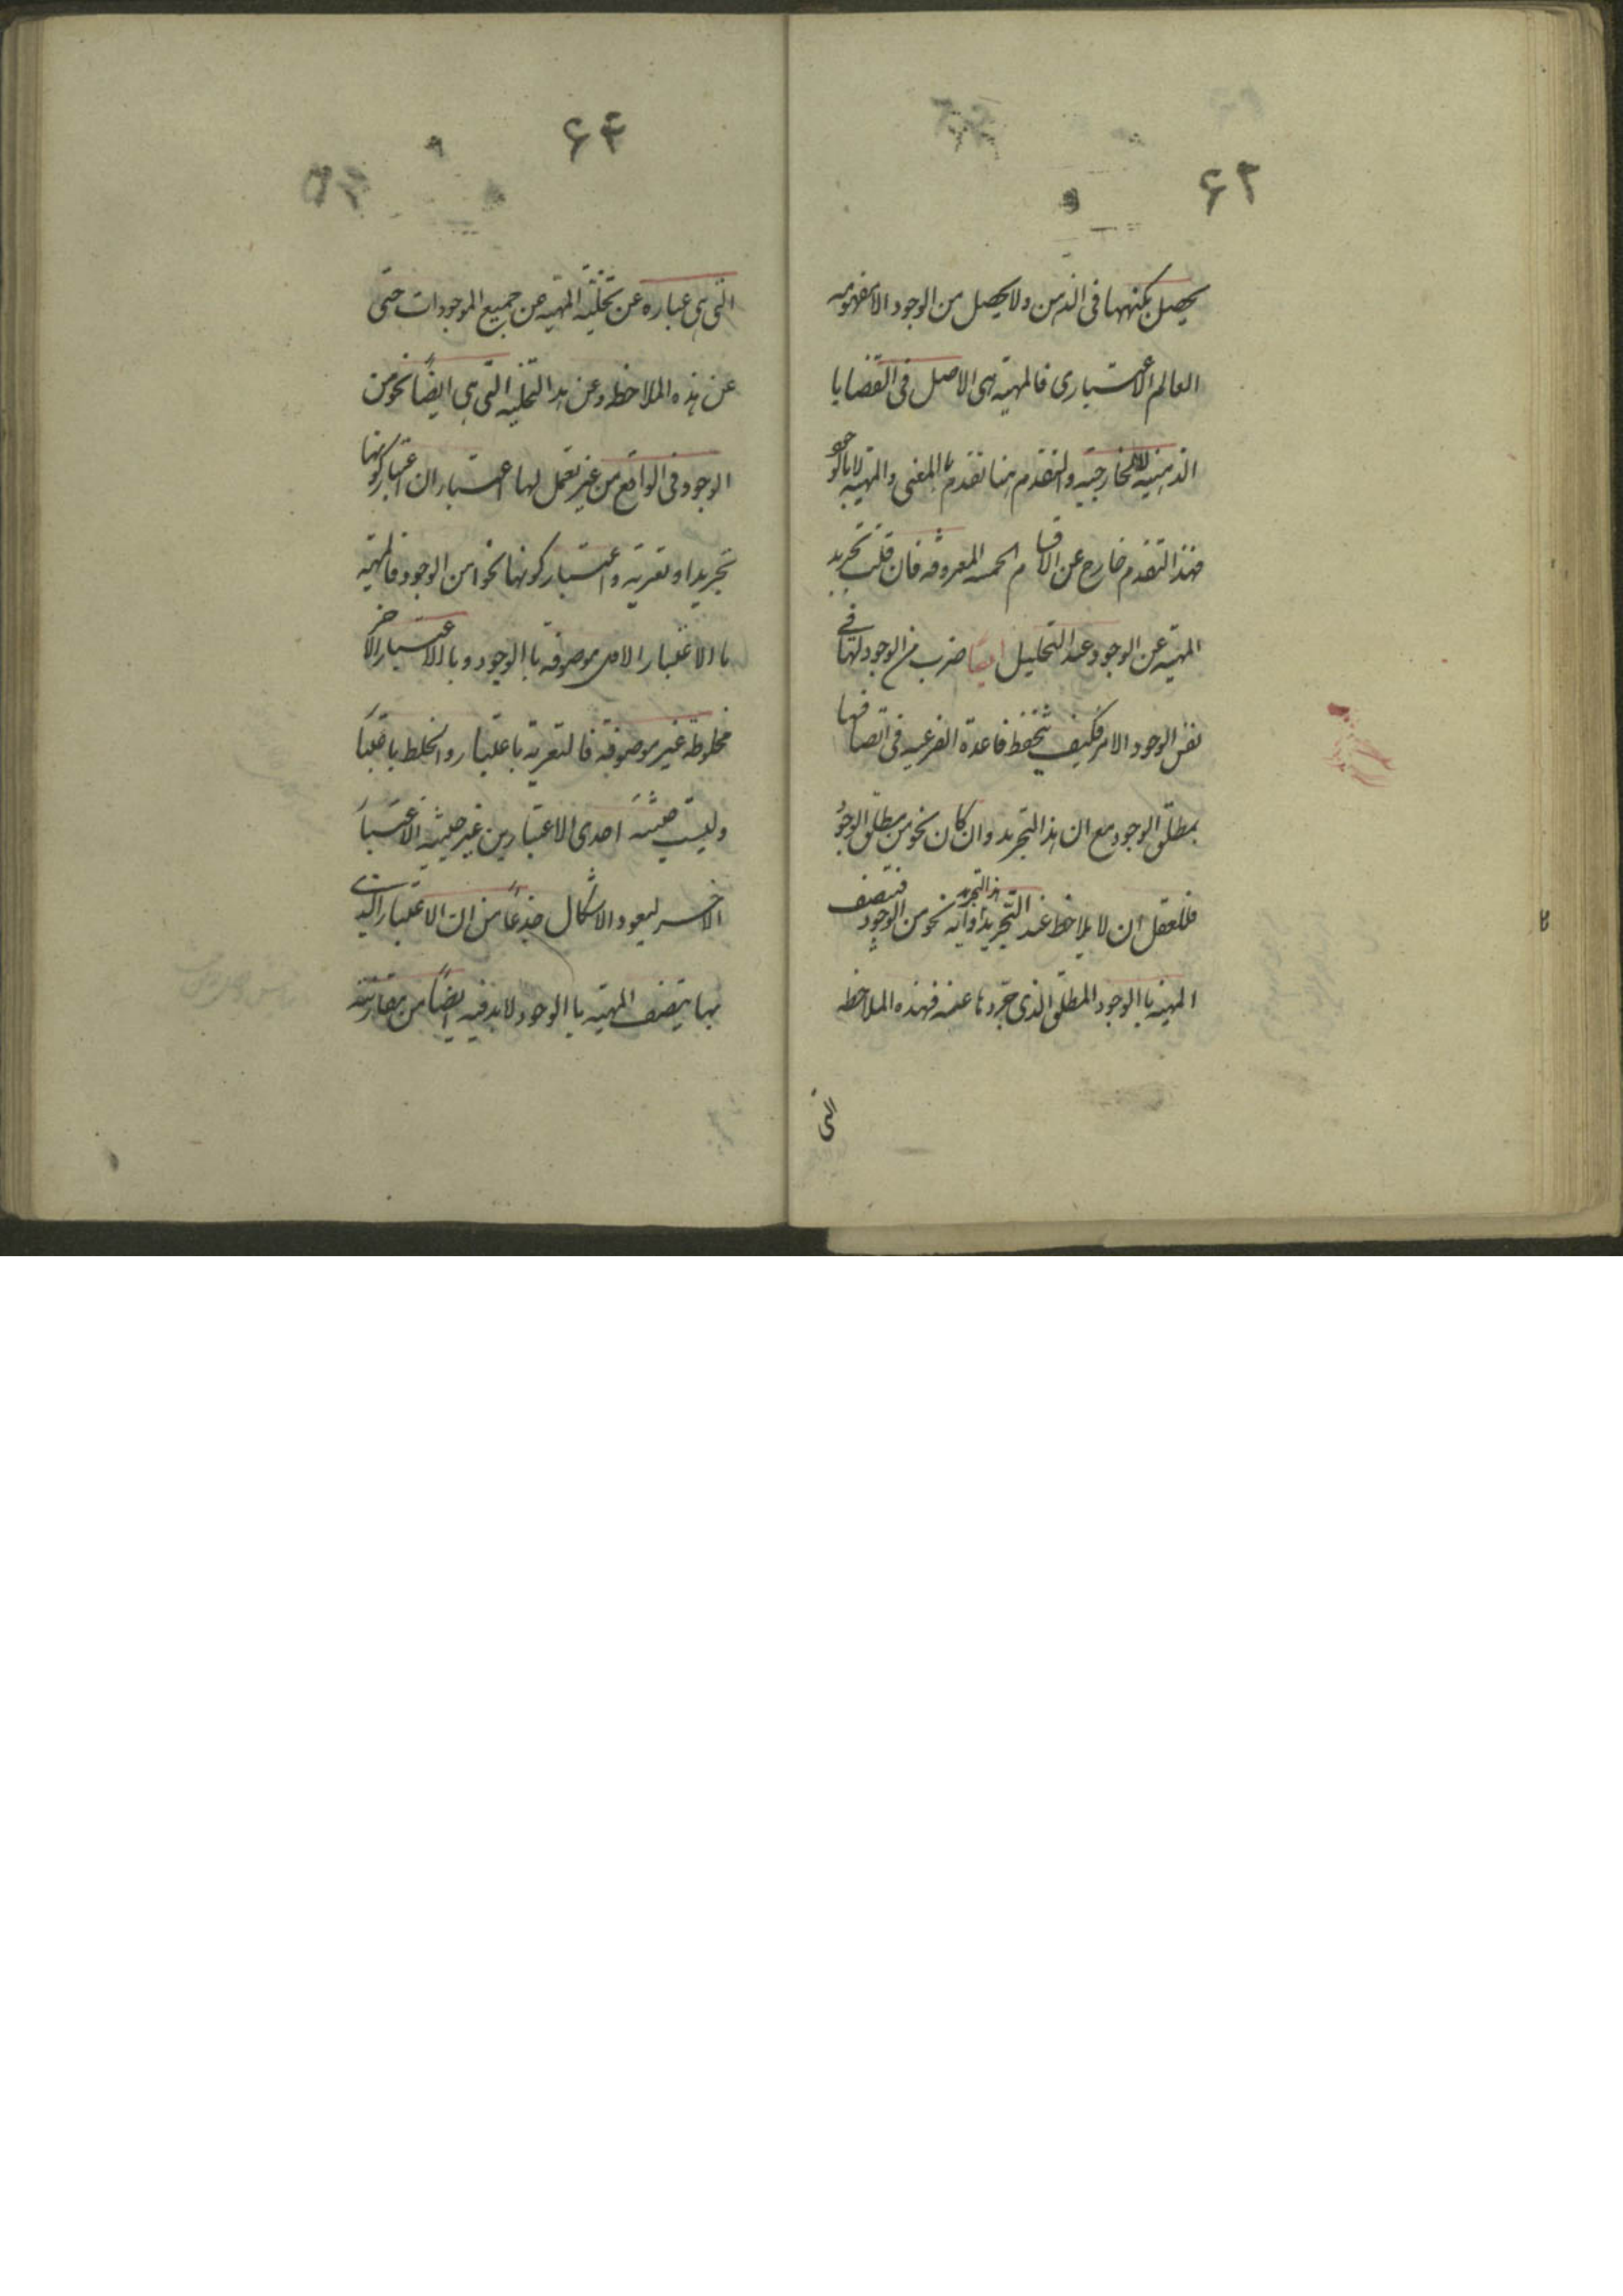 ۶۲
يحصل بكنهها فى الذهن ولا يحصل من الوجود الا مفهومه
العالم الاعتبارى فالمهية هى الاصل فى القضايا
الذهنية لا الخارجية والتقدم هنا تقدم بالمعنى والمهية لا بالوجو
فهذا التقدم خارج عن الاقسام الخمسه المعروفه فان قلت تجريد
المهية عن الوجود عند التحليل ايضا ضرب من الوجود لها فى
نفس الوجود الامر فكيف تنحفظ قاعدة الفرعيه فى اتصافها
بمطلق الوجود مع ان هذا التجريد وان كان نحو من مطلق الوجود
فللعقل ان لا يلاحظ عند التجريد هذا التجريد وانه نحو من الوجود فتتصف
المهية باالوجود المطلق الذى جردها عنه فهذه الملاحظه
التى
۶۴
التى هى عباره عن تخلية المهيه عن جميع الموجودات حتى
عن هذه الملاحظه وعن هذ التخليه التى هى ايضًا نحو من
الوجود فى الواقع من غير تعمل لها اعتباران اعتبار كونها
تجريدا وتعرية واعتبار كونها نحوا من الوجود فالمهية
باالاعتبار الاول موصوفه باالوجود وباالاعتبار الاخر
مخلوطة غير موصوفة فالتعرية باعتبار والخلط باعتبار
وليست حيثية احدى الاعتبارين غير حيثية الاعتبار
الاخر ليعود الاشكال جذعًا من ان الاعتبار الذى
بها يتصف المهية باالوجود لابد فيه ايضًا من مقارنته